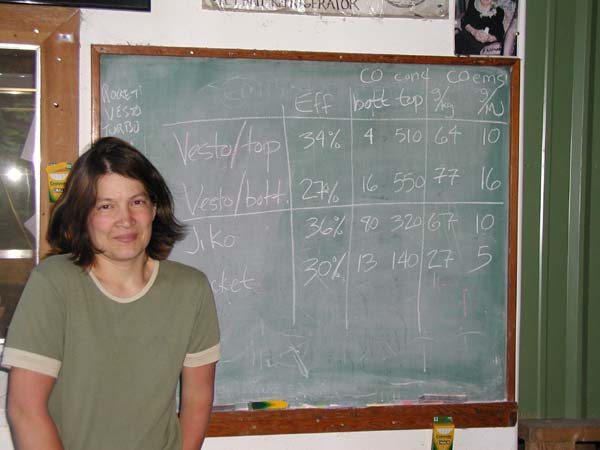 REFRIGERATOR
ROCKET
VESTO
TURBO
CO cond CO ems
Eff bott top g/kg g/MJ
Vesto/top 34% 4 510 64 10
Vesto/bott. 27% 16 550 77 16
Jiko 36% 80 320 67 10
cket 30% 13 140 27 5